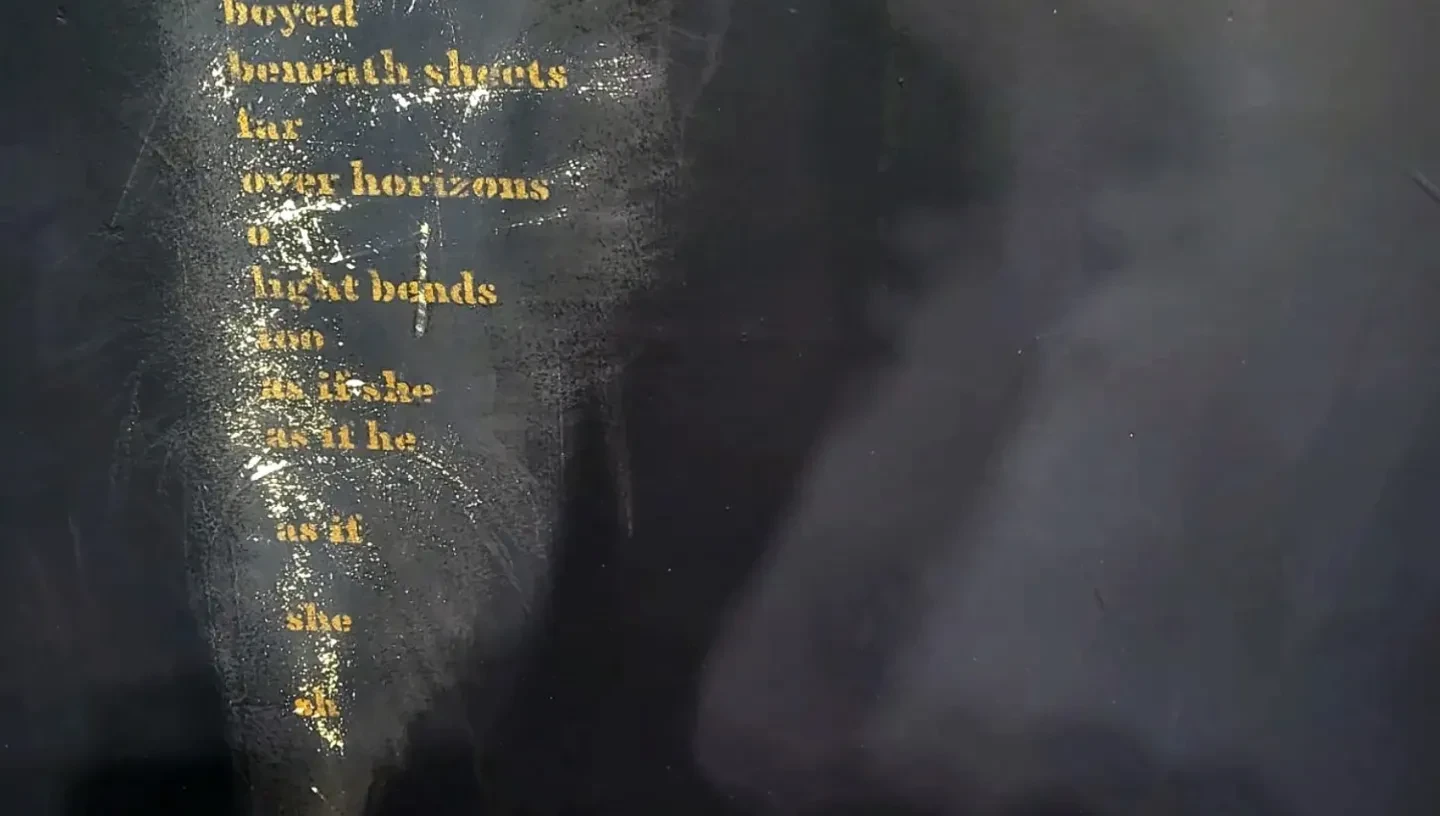 boyed
beneath sheets
far
over horizons
o
light bends
too
as if she
as if he
as if
she
sh